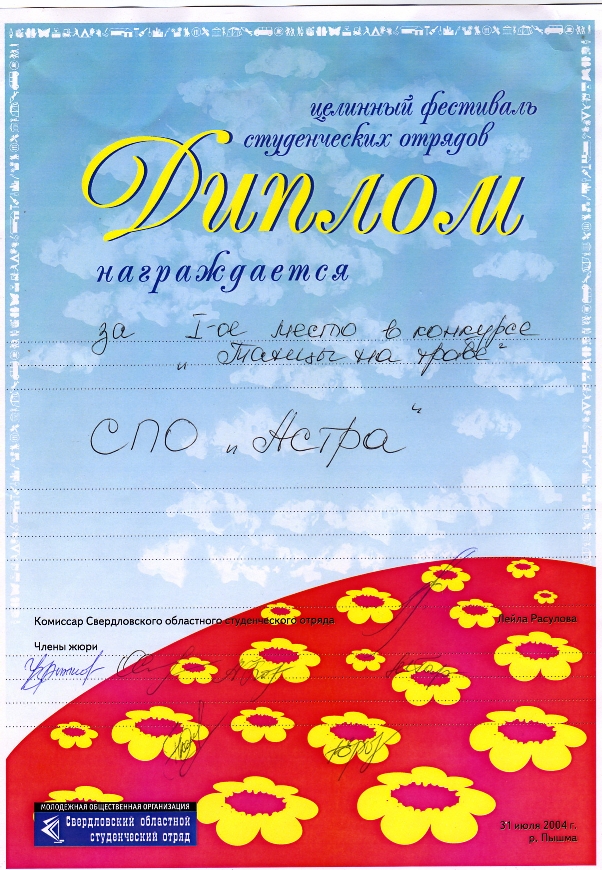 целинный фестиваль
студенческих отрядов
Диплом
награждается
за I-ое место в конкурсе
„Танцы на траве“
СПО „Астра“
Комиссар Свердловского областного студенческого отряда Лейла Расулова
Члены жюри
МОЛОДЕЖНАЯ ОБЩЕСТВЕННАЯ ОРГАНИЗАЦИЯ
Свердловский областной
студенческий отряд
31 июля 2004 г.
р. Пышма